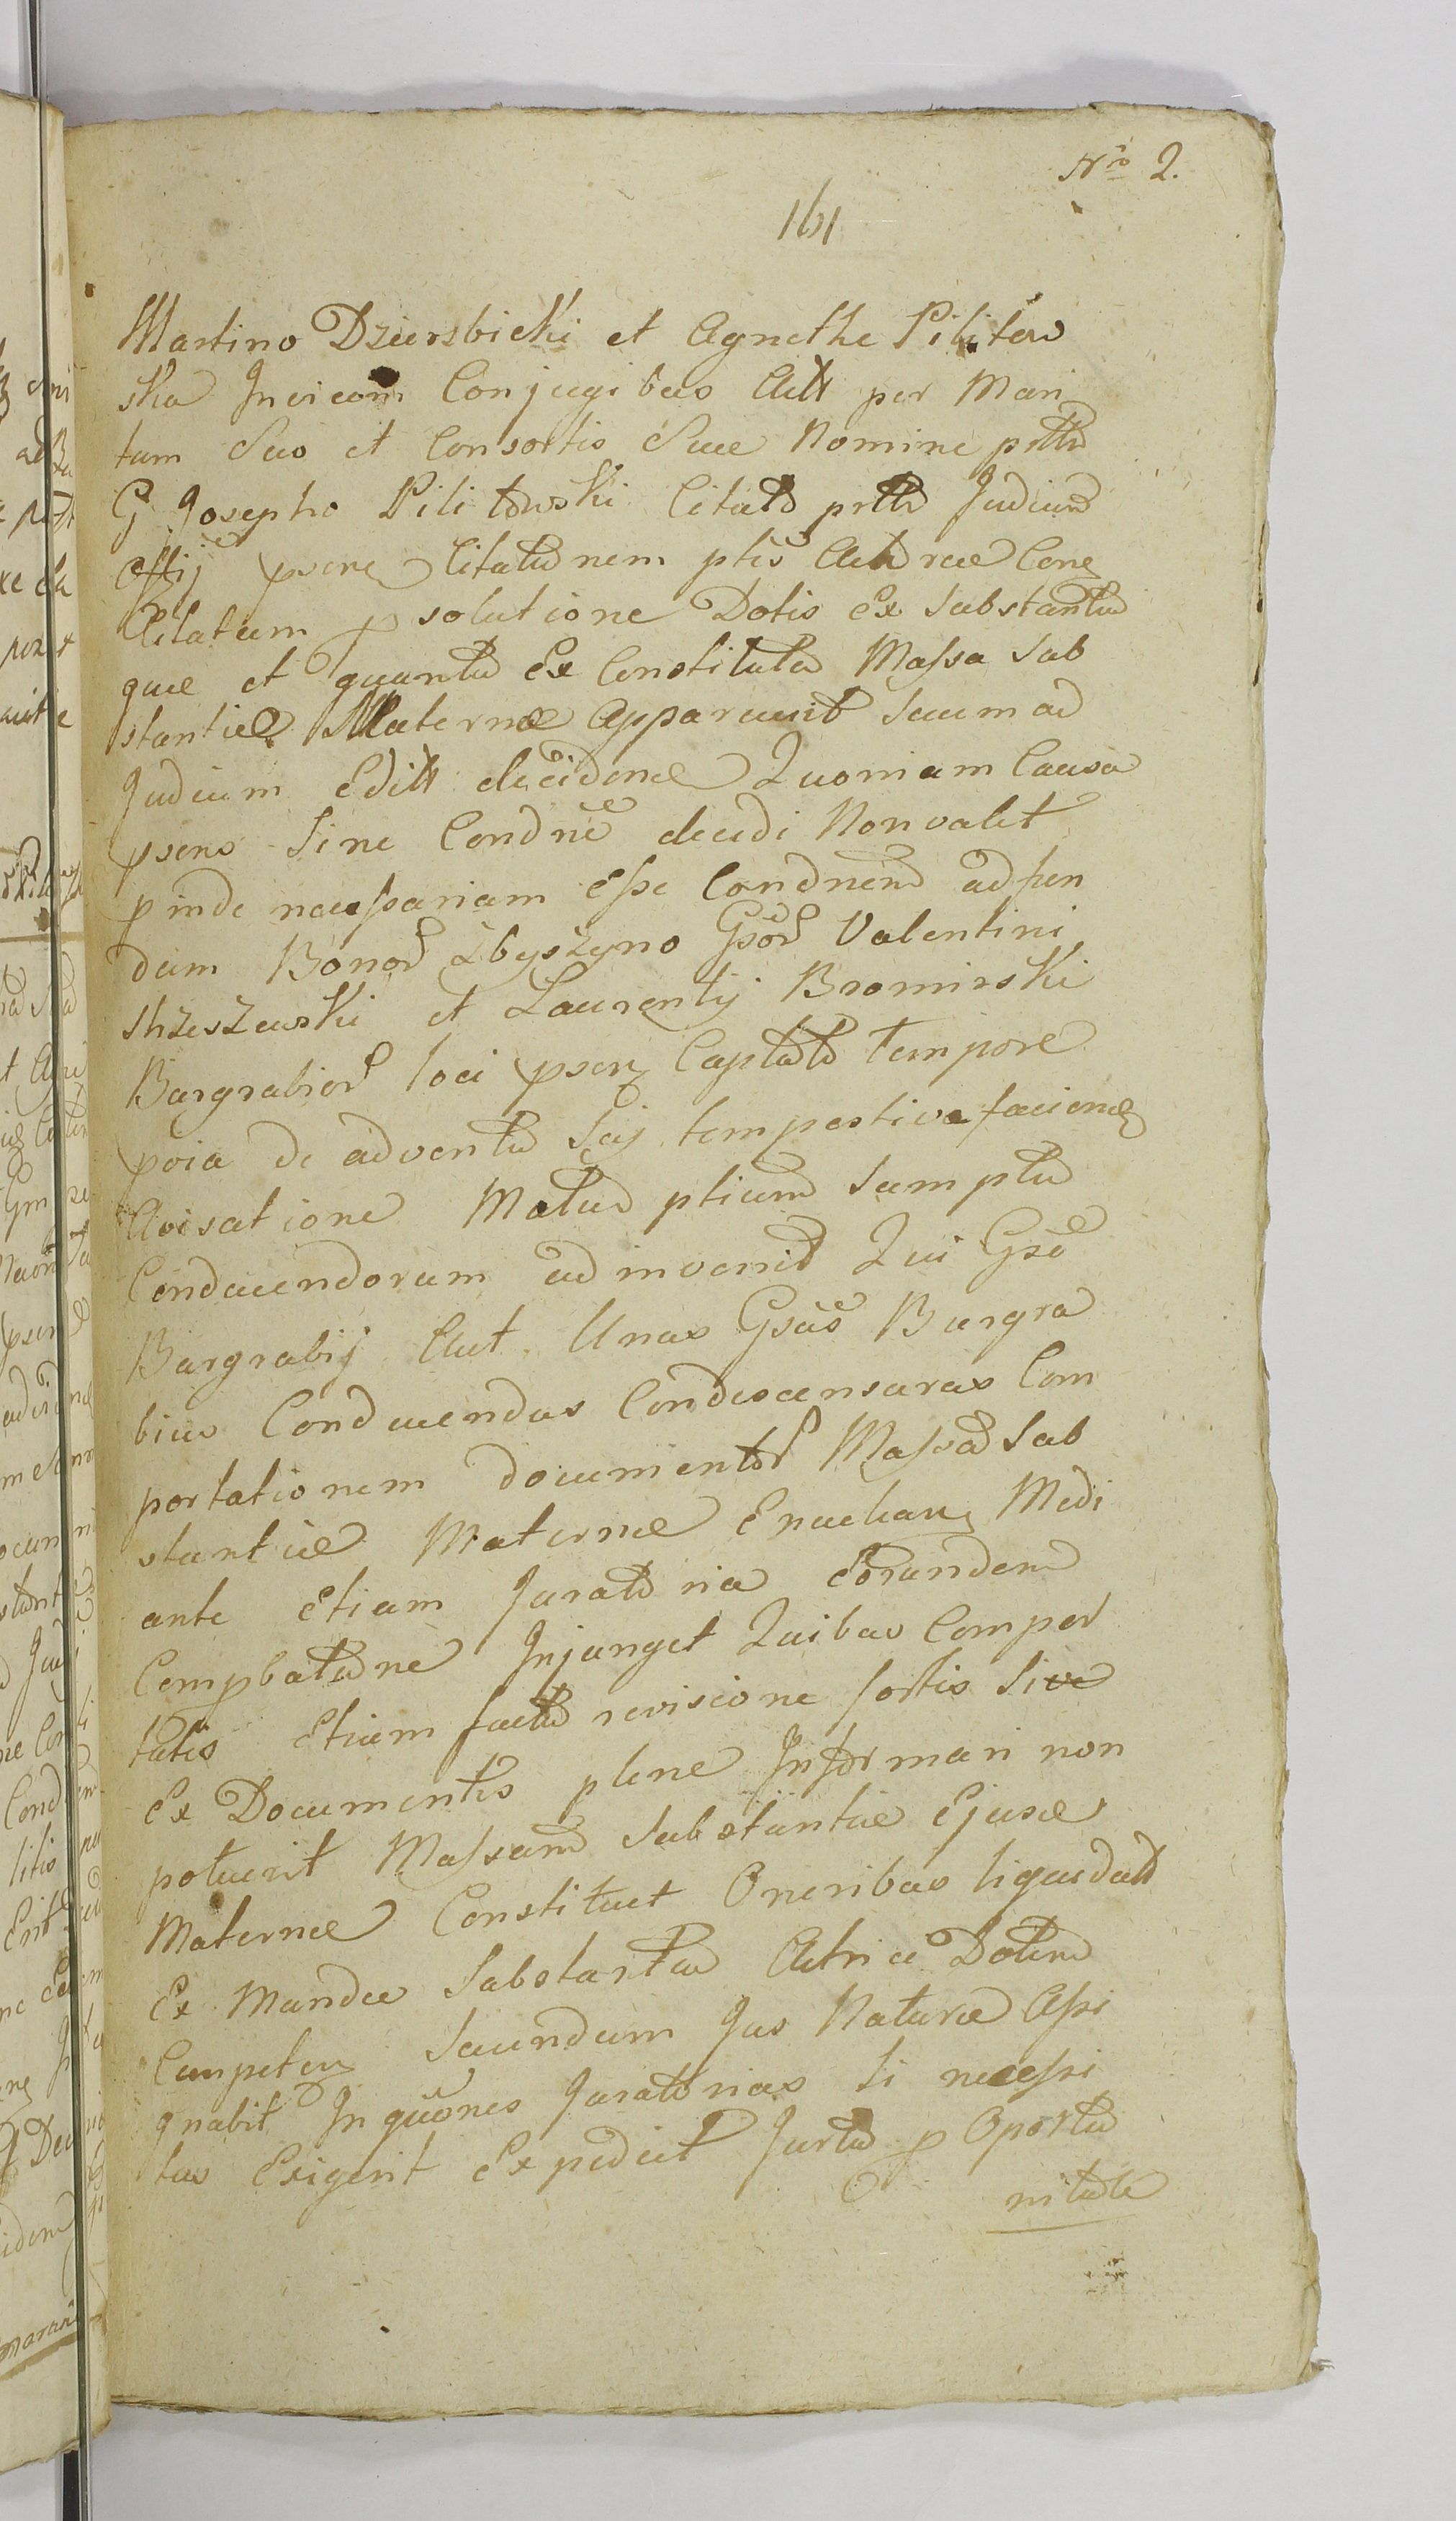 Nro 2.
161
Martino Dzierzbicki et Agnethe Pilitow
ska Invicem Conjugibus Actt per Mari
tum Suo et Consortis Suae Nomine prtte
G Josepho Pilitowski Citato prtte Judicium
Offij psens Citationem ptis Actoreae Cong
Citatum p solutione Dotis Ex Substantia
quae et quanta Ex Constituta Massa Sub
stantiae Maternae Apparuerit Secum ad
Judicium Editt decidene Quoniam Causa
psens Sine Condne decidi Non valet
pinde necessariam esse Condnend ad fun
dum Bonor Zbyszyno Gsor Valentini
Strzeszewski et Laurentij Bromirski
Burgrabior loci psens Captato Tempore
poia de adventu Suj tempestive faciend
Avisatione Motu ptium Sumptu
Conducendorum adinvenit Qui Gsi
Burgrabij Aut Unus Gsus Burgra
bius Conducendus Condescensurus Com
portationem documentor Massam Sub
stantiae Maternae Enuclean Medi
ante Etiam Juratoria Eorundem
Compbatione Injunget Quibus Compor
tatis Etiam facta revisione fortis Sive
Ex Documentis plene Informari non
potuerit Massam Substantiae Ejusce
Maternae Constituet Oneribus liquidatis
Ex Munda Substantia Actrici Dotem
Competen Secundum Jus Naturae Assi
gnabit Inquones Juratorias Si necessi
tas Exigerit Expediet Jurta p Oportu
nitate